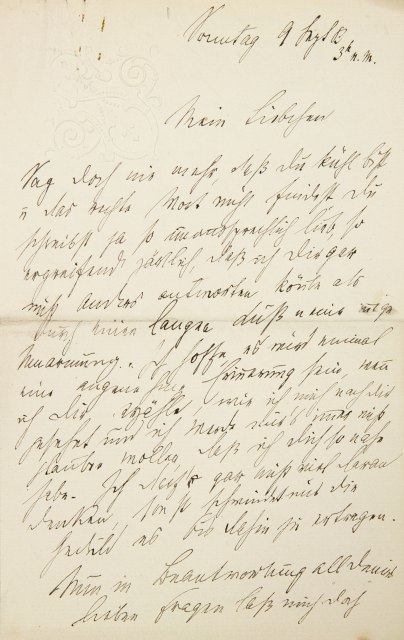 Sonntag 9 Sept 83
3h n.m.
Mein Liebchen
Sag doch nie mehr, daß du kühl bist
u das rechte Wort nicht findest Du
schreibst ja so unaussprechlich lieb, so
ergreifend zärtlich, daß ich Dir gar
nicht anders antworten könnte als
durch einen langen Kuß u eine innige
Umarmung. Ich hoffe es wird einmal
eine angenehme Erinnerung sein, wenn
ich Dir erzähle, wie ich mich nach Dir
gesehnt und ich werde dus immer nicht
glauben wollen, daß ich Dich so nahe
habe. Ich darf gar nicht viel daran
denken, sonst schwindet mir die
Geduld es bis dahin zu ertragen.
Nun in Beantwortung all Deiner
lieben Fragen laß mich doch